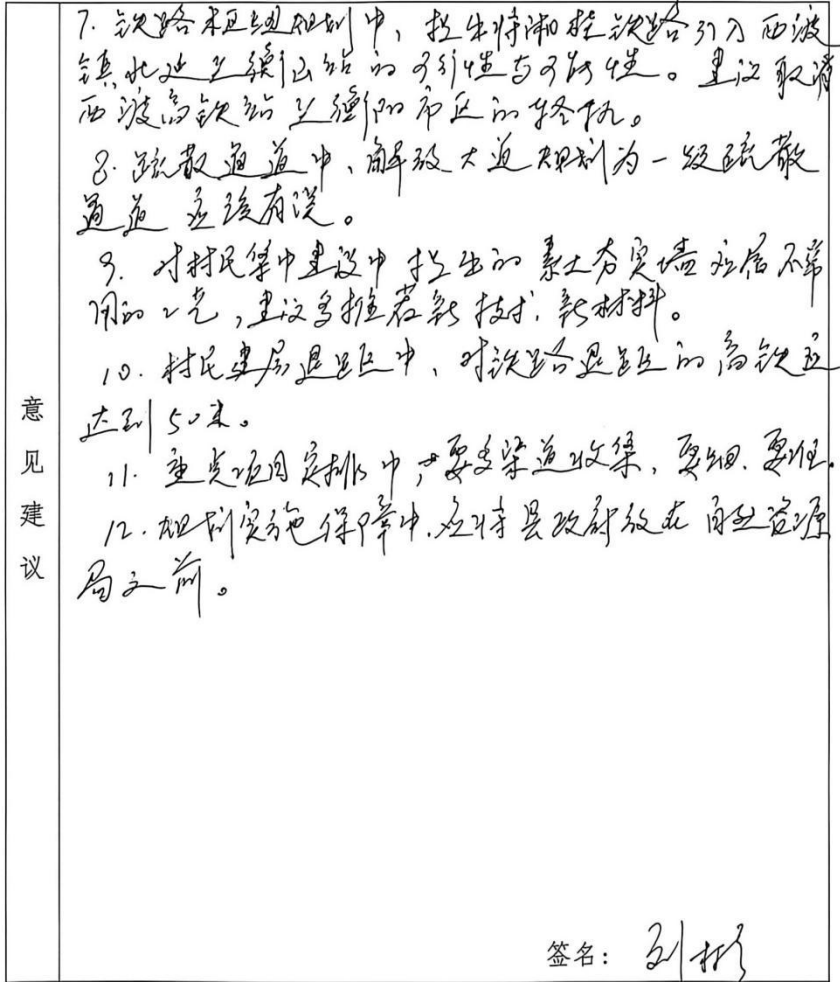 7. 铁路枢纽规划中，提出将湘桂铁路引入西渡
镇北延至衡山站的可行性与可能性。建议取消
西渡高铁站至衡阳市区的轻轨。
8. 疏散通道中，解放大道规划为一级疏散
通道应该有误。
9. 对村民集中建设中提出的素土夯实墙应属不常
用的工艺，建议多推荐新技术、新材料。
10. 村民建房退距中，对铁路退距的高铁应
达到50米。
11. 重点项目安排中，要多渠道收集，要细、要准。
12. 规划实施保障中，应将县政府放在自然资源
局之前。
意见建议
签名：刘